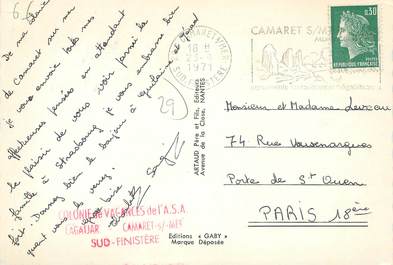 6.6
De ma colonie
de Camaret sur mer
je vous envoie toutes mes
affectueuses pensées en attendant
le plaisir de vous voir parmi la
famille à Strasbourg je vous embrasse bien
fort. Donnez bien le bonjour à
quand vous les verrez.
29
CAMARET S/MER
18 H
1971
SUD-FINISTERE
CAMARET S/M
0,30
REPUBLIQUE FRANÇAISE
ARTAUD Père et Fils, Editeurs
Avenue de la Close, NANTES
Monsieur et Madame
74 Rue Vauvenargues
Porte de St Ouen
PARIS 18ème
COLONIE de VACANCES de l'A.S.A.
LAGATJAR CAMARET-s/-MER
SUD-FINISTÈRE
Editions « GABY »
Marque Déposée